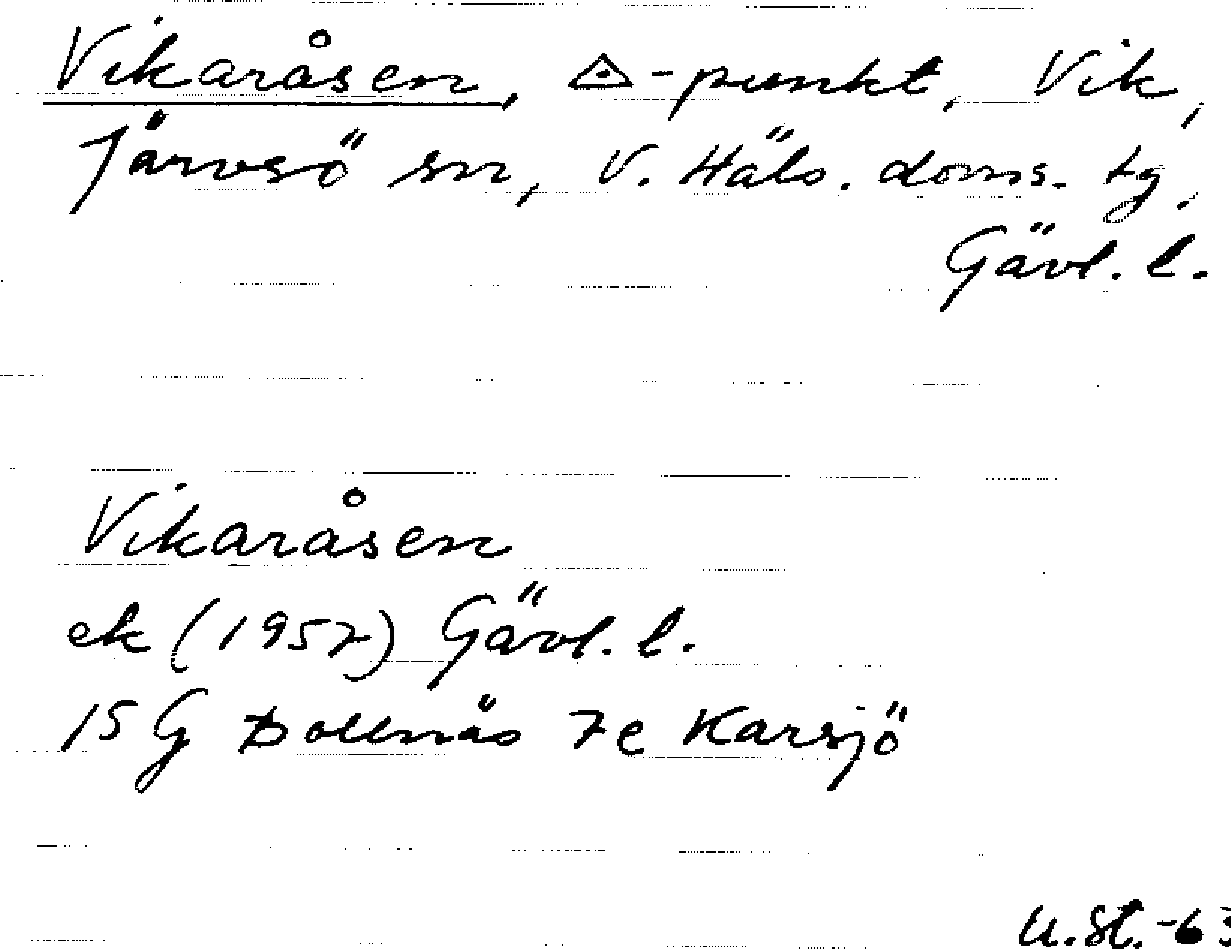 Vikaråsen, △-punkt, Vik,
Järvsö sn, V. Häls. doms. tg.
Gävl. l.
Vikaråsen
ek (1957) Gävl. l.
15 G Bollnäs 7e Karsjö
U.St. -63